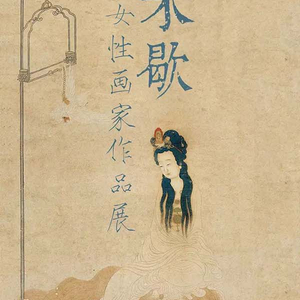 歇
女性画家作品展